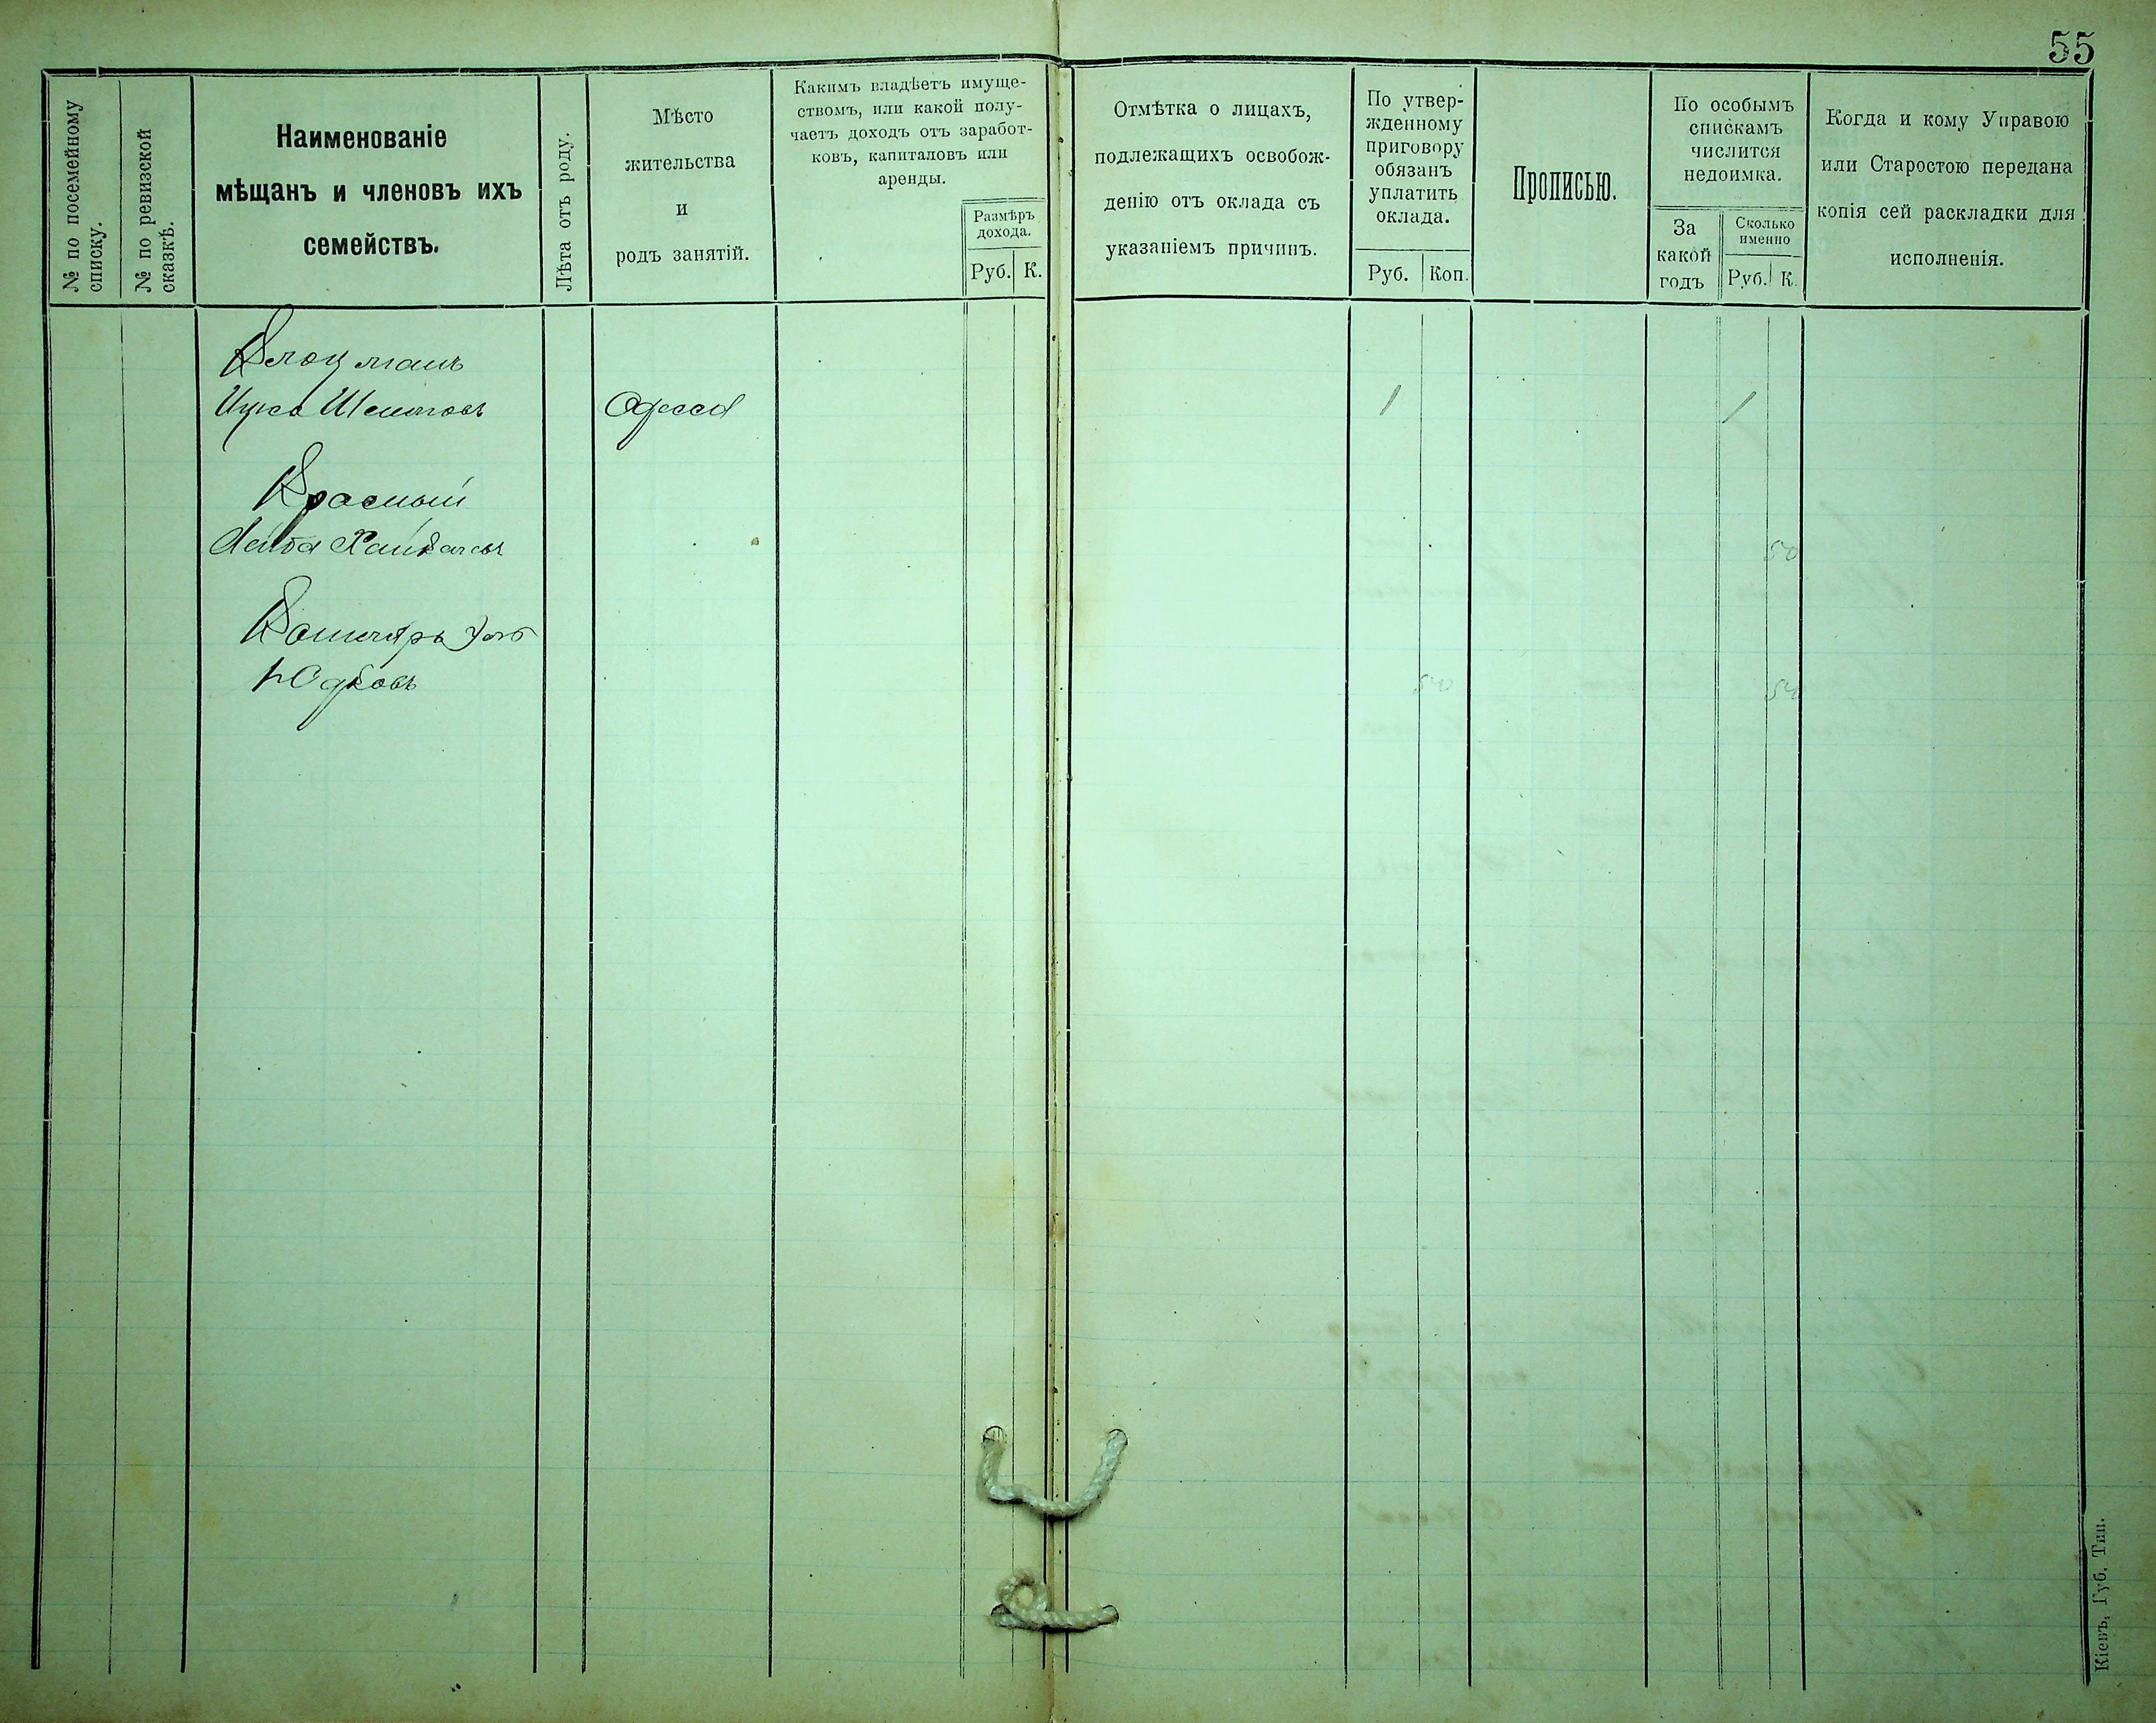 55
№ по посемейному
списку.
№ по ревизской
сказкѣ.
Наименованіе
мѣщанъ и членовъ ихъ
семействъ.
Лѣта отъ роду.
Мѣсто
жительства
и
родъ занятій.
Какимъ владѣетъ имуще-
ствомъ, или какой полу-
чаетъ доходъ отъ заработ-
ковъ, капиталовъ или
аренды.
Размѣръ
дохода.
Руб. К.
Отмѣтка о лицахъ,
подлежащихъ освобож-
денію отъ оклада съ
указаніемъ причинъ.
По утвер-
жденному
приговору
обязанъ
уплатить
оклада.
Руб. Коп.
Прописью.
По особымъ
спискамъ
числится
недоимка.
За
какой
годъ
Сколько
именно
Руб. К.
Когда и кому Управою
или Старостою передана
копія сей раскладки для
исполненія.
Клоцманъ
Ицко Одесса 1 1
Красный
Лейба 50
Юдковъ 50 50
Кіевъ, Губ. Тип.